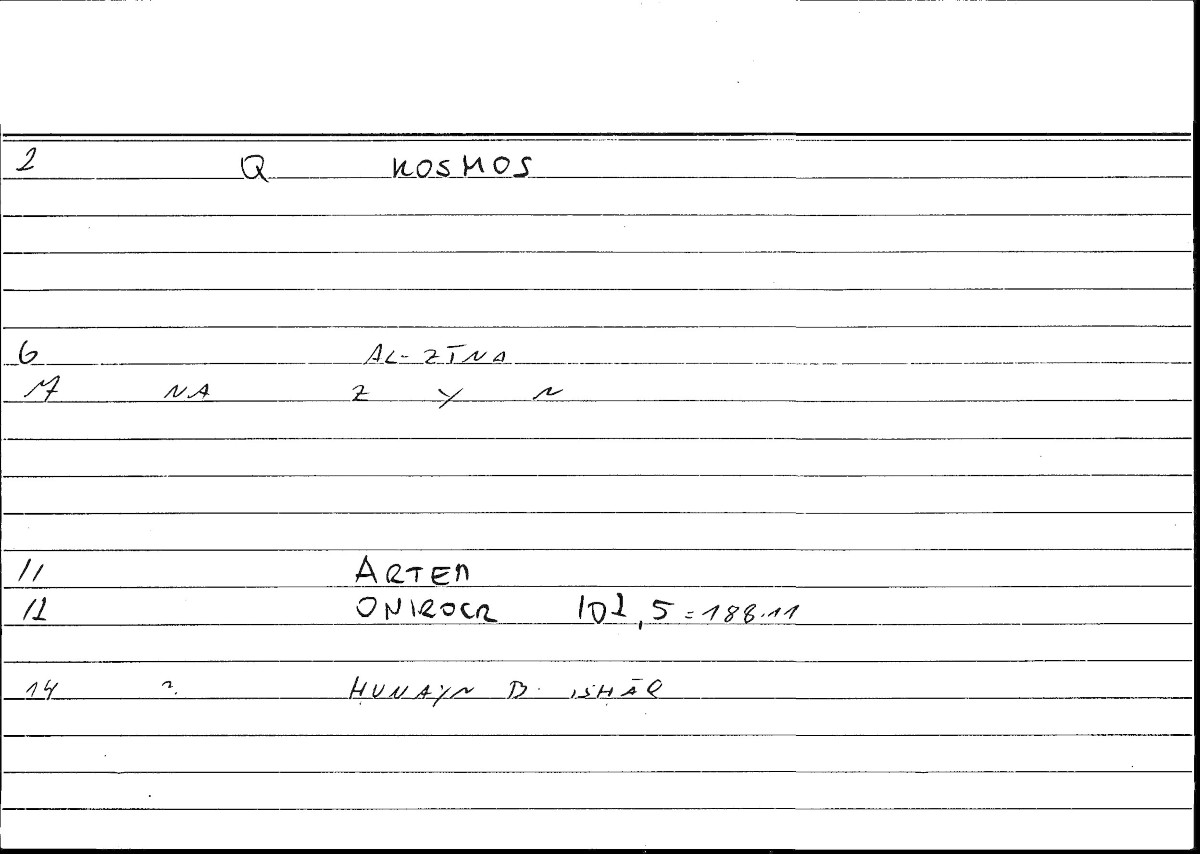 2 Q KOSMOS
6 AL-ZĪNA
17 NA Z Y N
11 ARTEM
12 ONIROCR 102,5=188.11
14 2. ḤUNAYN B. ISḤĀQ